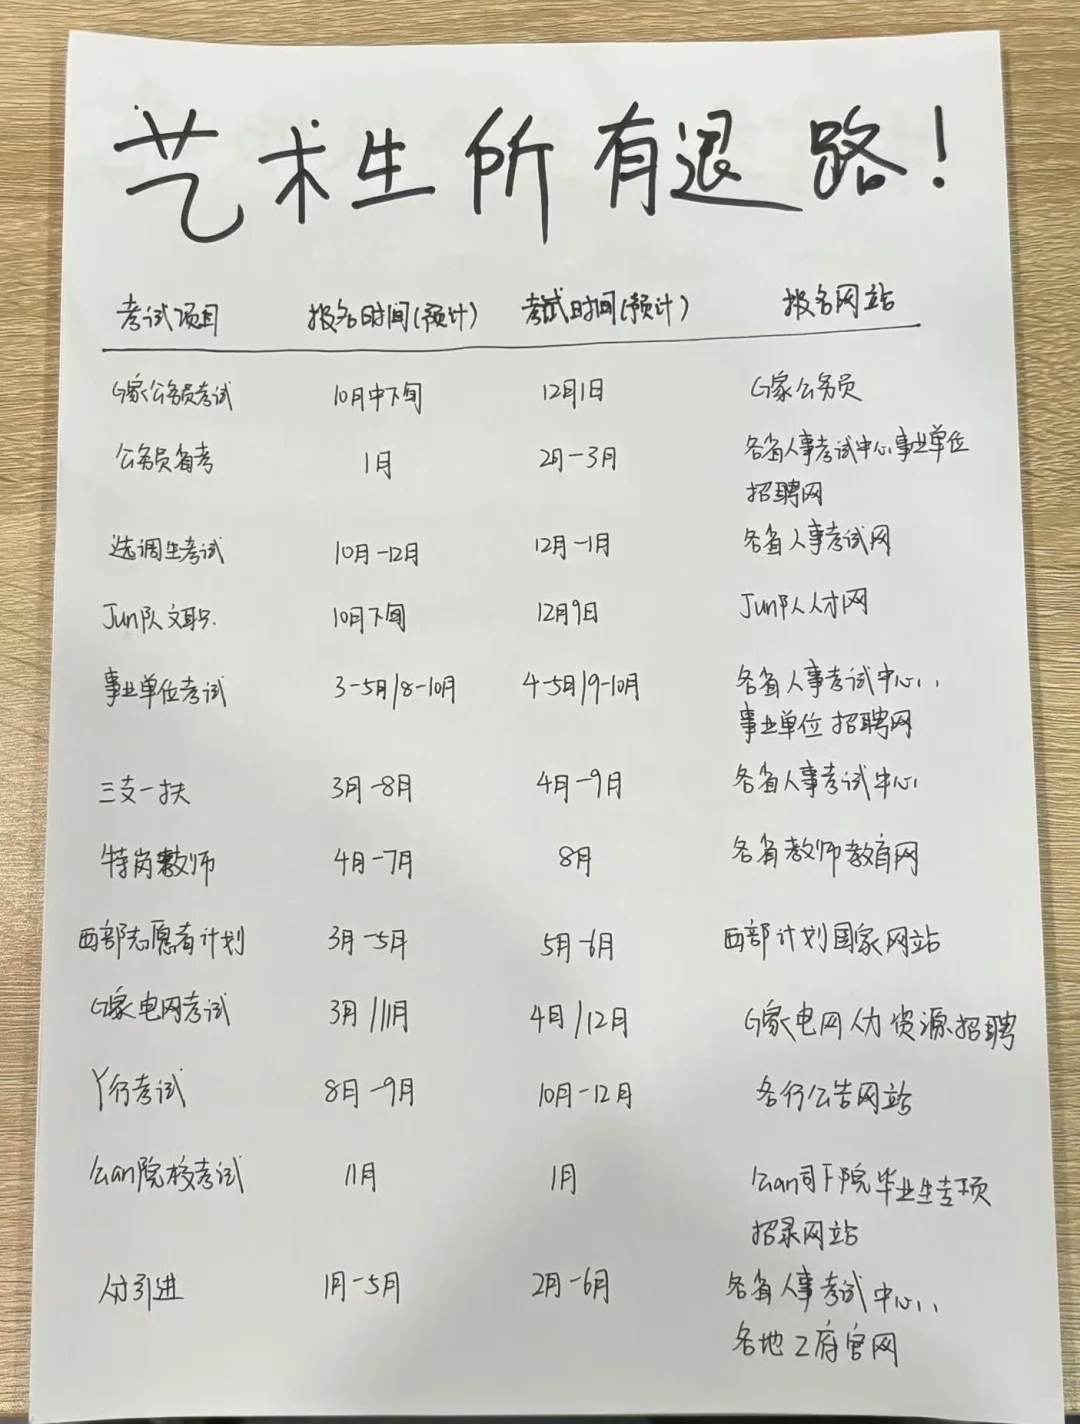 艺术生所有退路！
考试项目 报名时间(预计) 考试时间(预计) 报名网站
G家公务员考试 10月中下旬 12月1日 G家公务员
公务员省考 1月 2月-3月 各省人事考试中心事业单位
招聘网
选调生考试 10月-12月 12月-1月 各省人事考试网
Jun队文职. 10月下旬 12月9日 Jun队人才网
事业单位考试 3-5月/8-10月 4-5月/9-10月 各省人事考试中心、
事业单位招聘网
三支一扶 3月-8月 4月-9月 各省人事考试中心
特岗教师 4月-7月 8月 各省教师教育网
西部志愿者计划 3月-5月 5月-6月 西部计划国家网站
G家电网考试 3月/11月 4月/12月 G家电网人力资源招聘
丫行考试 8月-9月 10月-12月 各行公告网站
公an院校考试 11月 1月 公an司下院毕业生专项
招录网站
人才引进 1月-5月 2月-6月 各省人事考试中心、
各地Z府官网